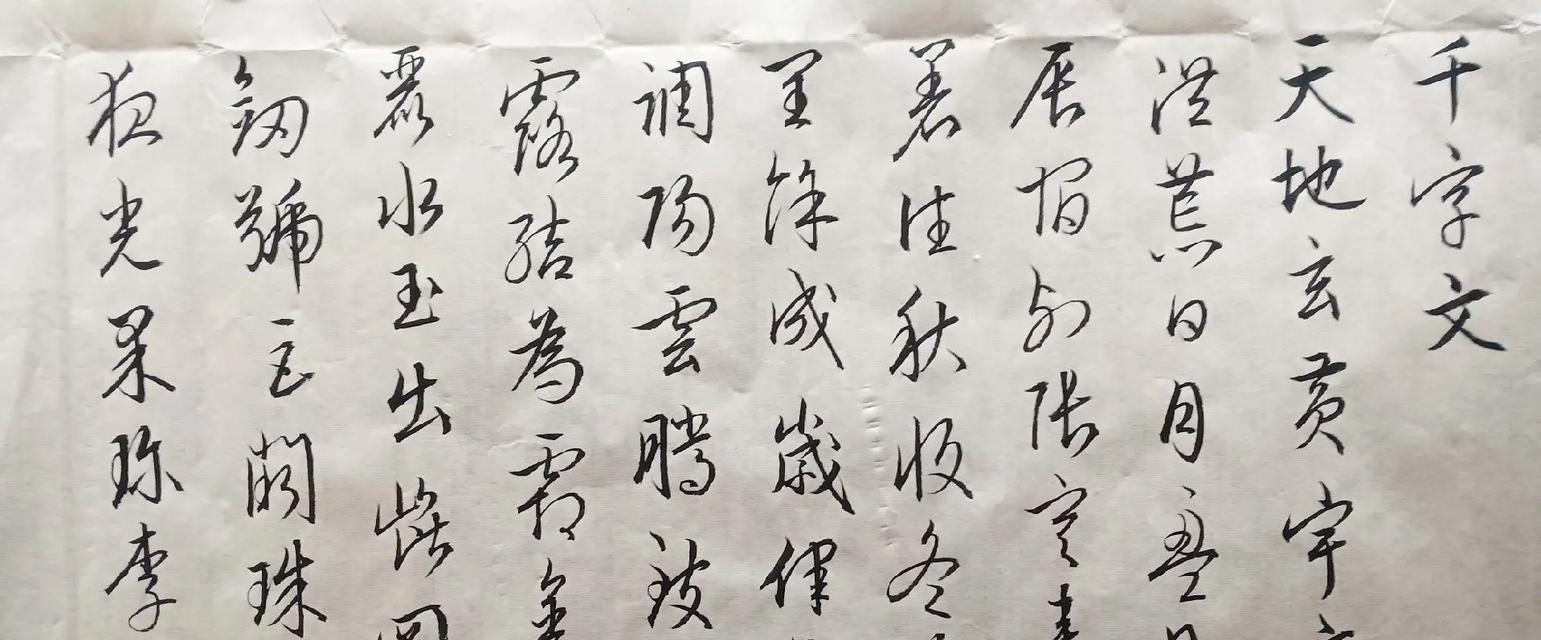 千字文
天地玄黄宇
洪荒日月盈
辰宿列張寒
暑往秋收冬
閏餘成歲律
調陽雲騰致
露結為霜金
麗水玉出崑岡
劍號巨闕珠
夜光果珍李